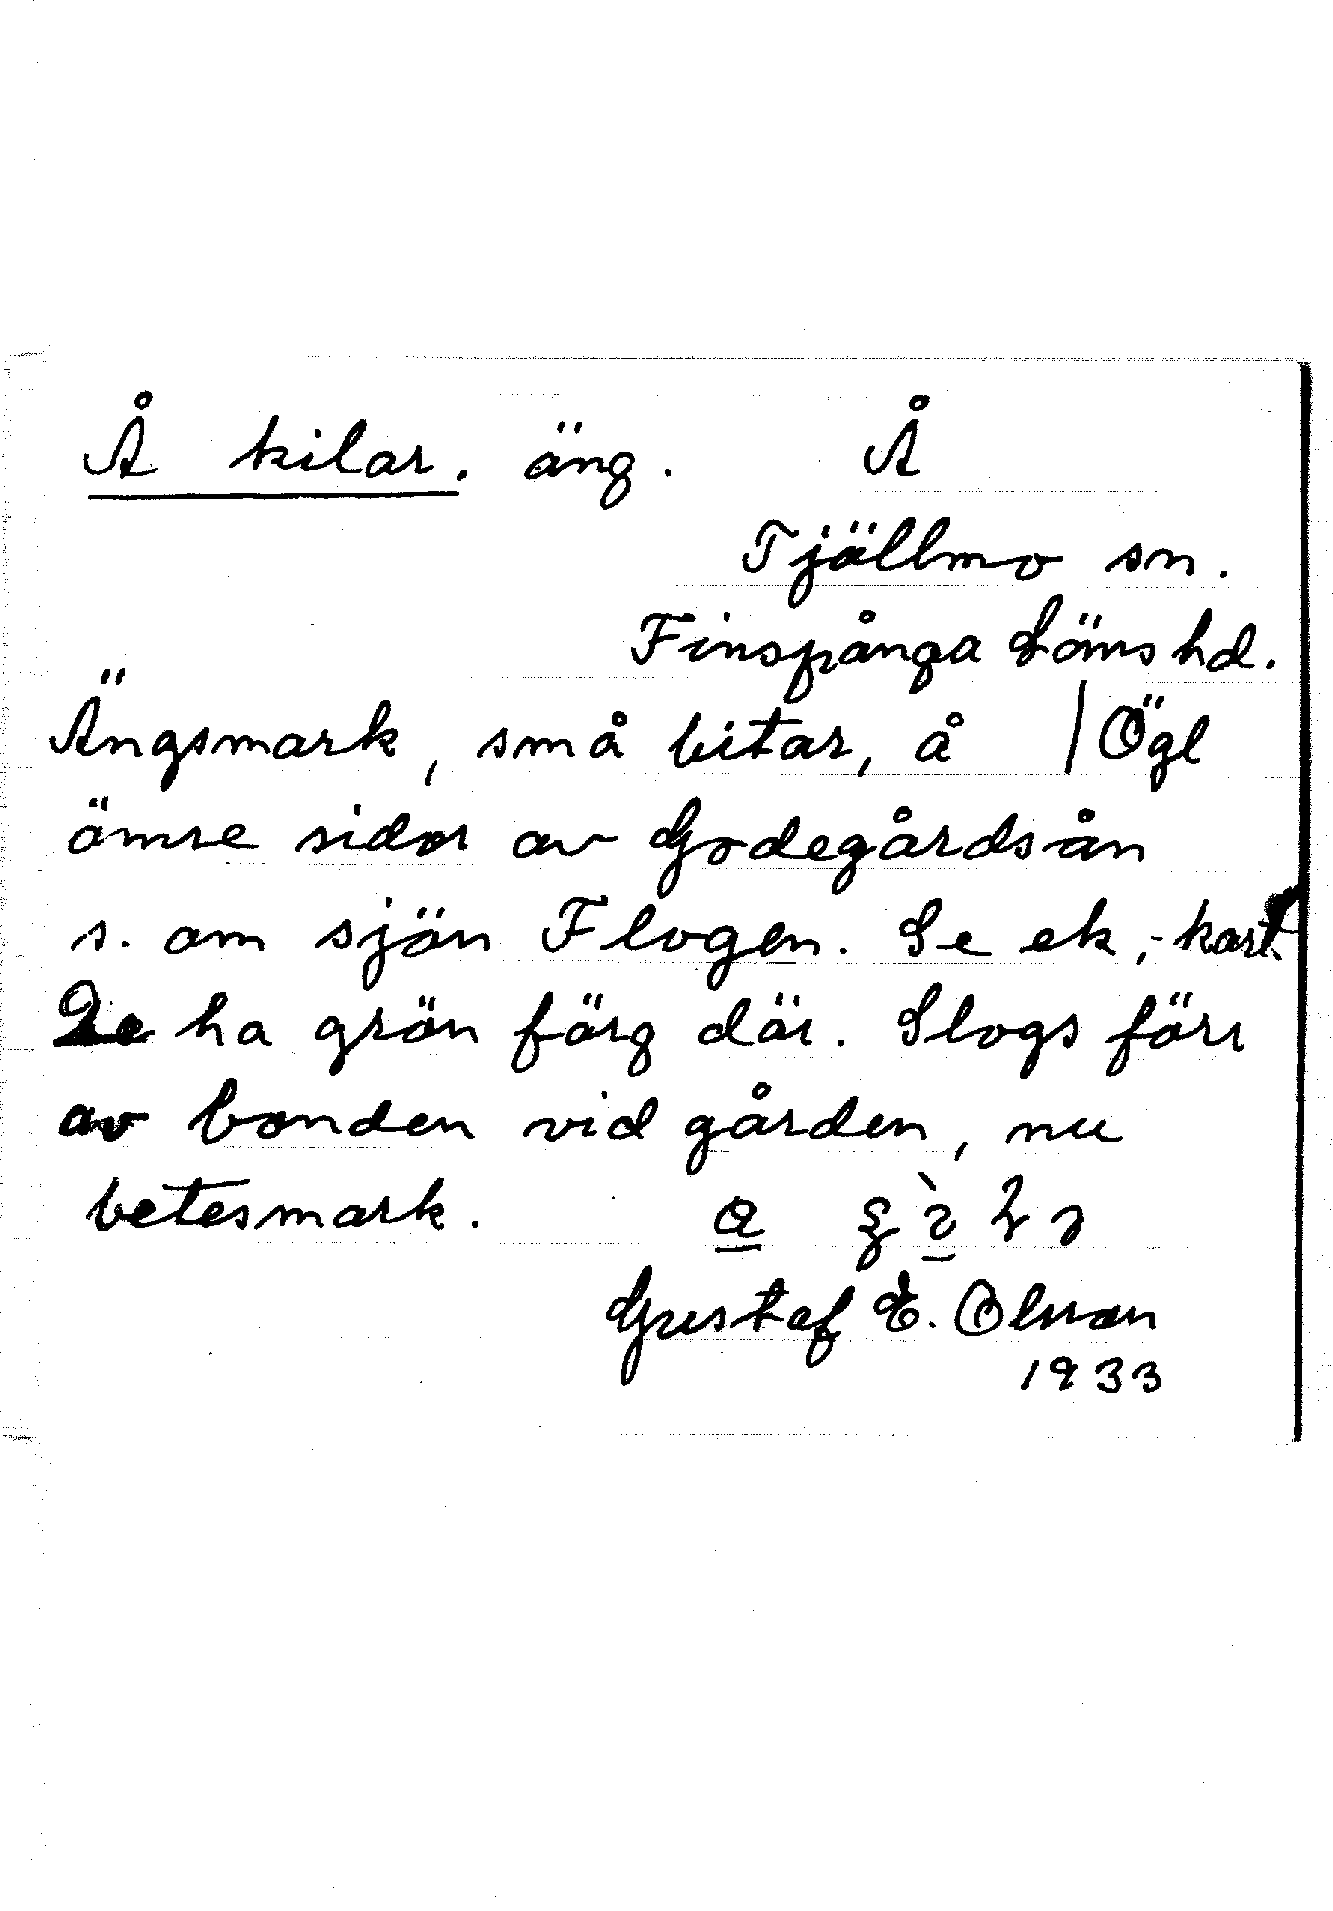 Å kilar. äng. Å
Tjällmo sn.
Finspånga Läns hd.
Ängsmark, små bitar, å / Ögl
ömse sidor av Godegårdsån
s. om sjön Flogen. Se ek.-kart.
De ha grön färg där. Slogs förr
av bonden vid gården, nu
betesmark.
Gustaf E. Olsson
1933